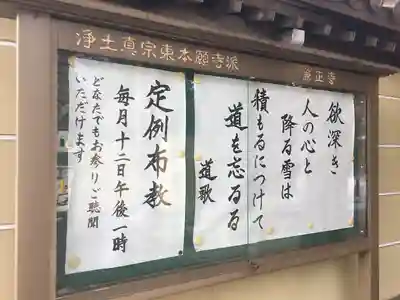 浄土真宗東本願寺派
欲深き
人の心と
降る雪は
積もるにつけて
道を忘るる
道歌
定例布教
毎月十二日午後一時
どなたでもお参りご聴聞
いただけます